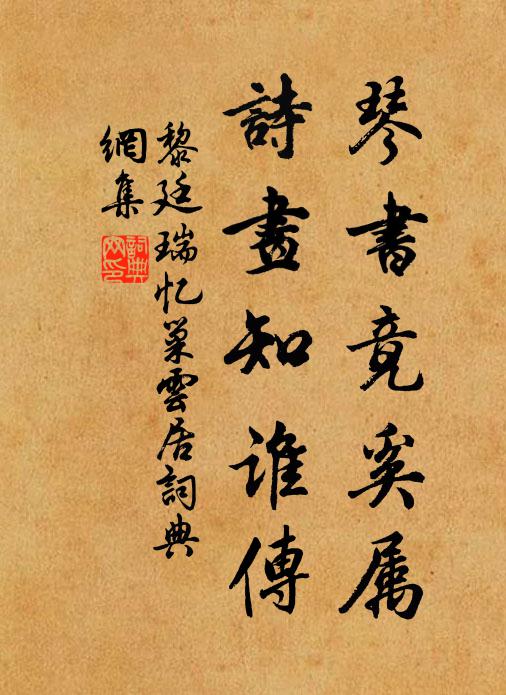 琴書竟奚属
詩畫知誰傳
黎廷瑞忆巢雲居詞典
網集
詞典
网印